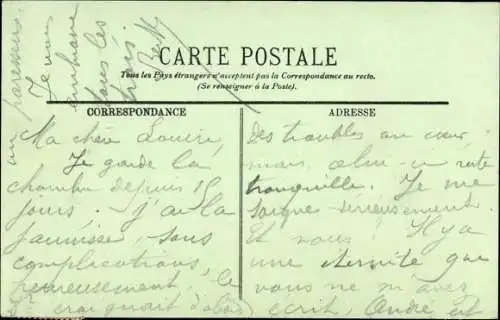 CARTE POSTALE
Tous les Pays étrangers n'acceptent pas la Correspondance au recto.
(Se renseigner à la Poste).
CORRESPONDANCE
Ma chère Louise,
Je garde la
chambre depuis 15
jours. J'ai la
jaunisse, sans
complications,
heureusement. Le
Dr craignait d'abord
ADRESSE
des troubles au cœur
mais, celui-ci reste
tranquille. Je me
soigne sérieusement.
Et vous? Il y a
une éternité que
vous ne m'avez
écrit, André est
un paresseux.
Je vous
embrasse
tous les
trois